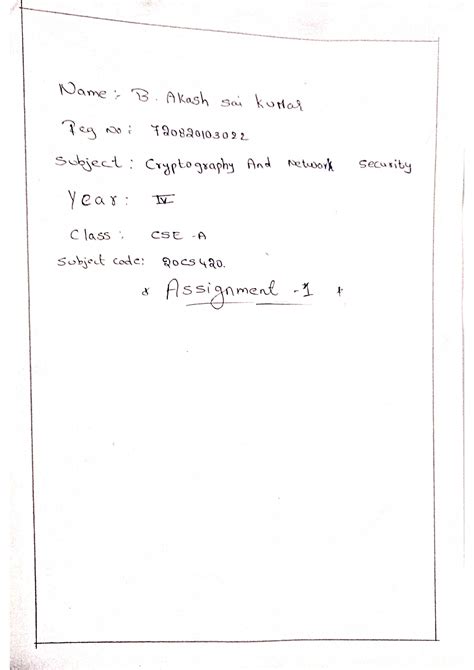 Name :- B. Akash sai kumar
Reg No : 720820103022
Subject : Cryptography And Network Security
Year : IV
Class : CSE -A
Subject code: 20CS420.
* Assignment -1 *